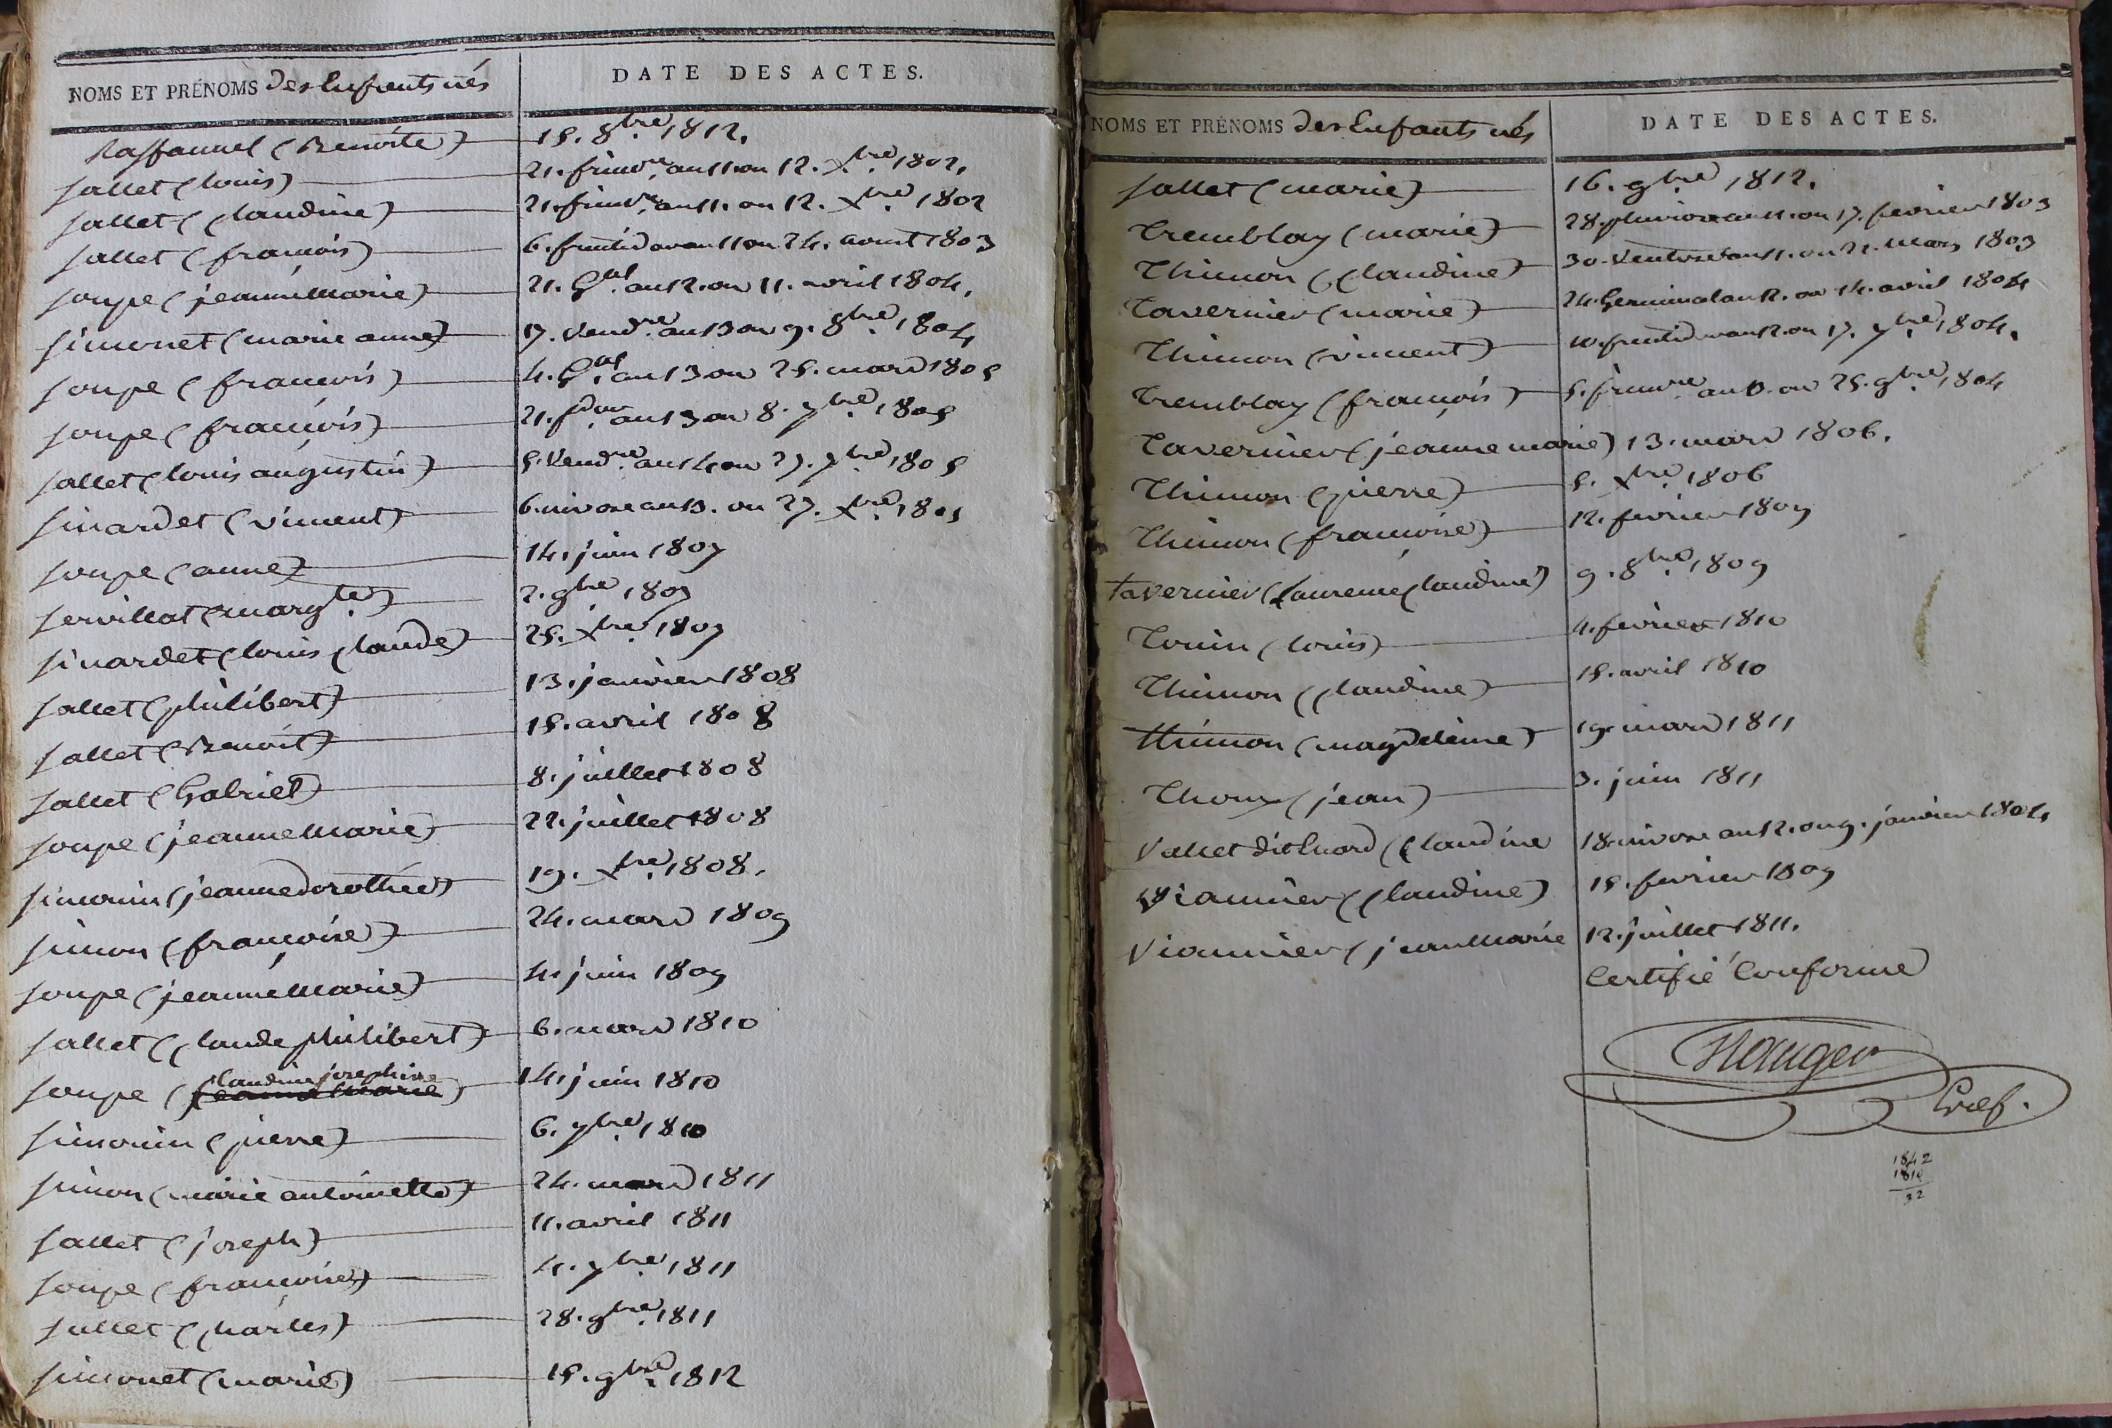 NOMS ET PRÉNOMS des Enfants nés DATE DES ACTES.
Raffannel (Benoite) 15. 8bre. 1812.
Sallet (louis) 21. frimre. an 11 ou 12. Xbre. 1802.
Sallet (Claudine) 21. frimre. an 11. ou 12. Xbre 1802
Sallet (françois) 6. fructidor an 11 ou 24. aout 1803
Soupe (jeanne Marie) 21. Gal. an 12. ou 11. avril 1804.
Simonet (marie anne) 17. Vendre. an 13 ou 9. 8bre. 1804
Soupe (françois) 4. Gal. an 13 ou 25. mars 1805
Soupe (françois) 21. fdor an 13 ou 8. 7bre. 1805
Sallet (louis augustin) 5. Vendre. an 14 ou 27. 7bre. 1805
Sinardet (vincent) 6. nivose an 13. ou 27. Xbre. 1805
Soupe (anne) 14. juin 1807
Servillat (margte.) 2. 9bre 1807
Sinardet (louis Claude) 25. Xbre. 1807
Sallet (philibert) 13. janvier 1808
Sallet (Benoit) 15. avril 1808
Sallet (Gabriel) 8. juillet 1808
Soupe (jeanne Marie) 22. juillet 1808
Simonin (jeanne dorothée) 19. Xbre. 1808.
Simon (françoise) 24. mars 1809
Soupe (jeanne Marie) 4. juin 1809
Sallet (Claude philibert) 6. mars 1810
Claudine josephine
Soupe (jeanne Marie) 14. juin 1810
Simonin (pierre) 6. 7bre. 1810
Simon (marie antoinette) 24. mars 1811
Sallet (joseph) 11. avril 1811
Soupe (françoise) 4. 7bre. 1811
Sallet (Charles) 28. 9bre. 1811
Simonet (marie) 15. 9bre. 1812
NOMS ET PRÉNOMS des Enfants nés DATE DES ACTES.
Sallet (marie) 16. 9bre. 1812.
Tremblay (marie) 28. pluviose an 11. ou 17. fevrier 1803
Thimon (Claudine) 30. Ventose an 11. ou 21. Mars 1803
Tavernier (marie) 24. Germinal an 12. ou 14. avril 1804
Thimon (vincent) fructidor an 12. ou 17. 7bre. 1804.
Tremblay (françois) 5. frimre. an ou 25. 9bre. 1804
Tavernier (jeanne marie) 13. mars 1806.
Thimon (pierre) 5. Xbre. 1806
Thimon (françoise) 12. fevrier 1809
tavernier (Laurence Claudine) 9. 8bre. 1809
Tonin (louis) 4. fevrier 1810
Thimon (Claudine) 15. avril 1810
thimon (magdeleine) 19. mars 1811
Thoux (jean) 3. juin 1811
Vallet dit Huard (Claudine 18. nivose an 12. ou 9. janvier 1804.
Viannier (Claudine) 15. fevrier 1809
Vionnier (jean Marie 12. juillet 1811.
Certifié Conforme
Gref.
1842
1810
32